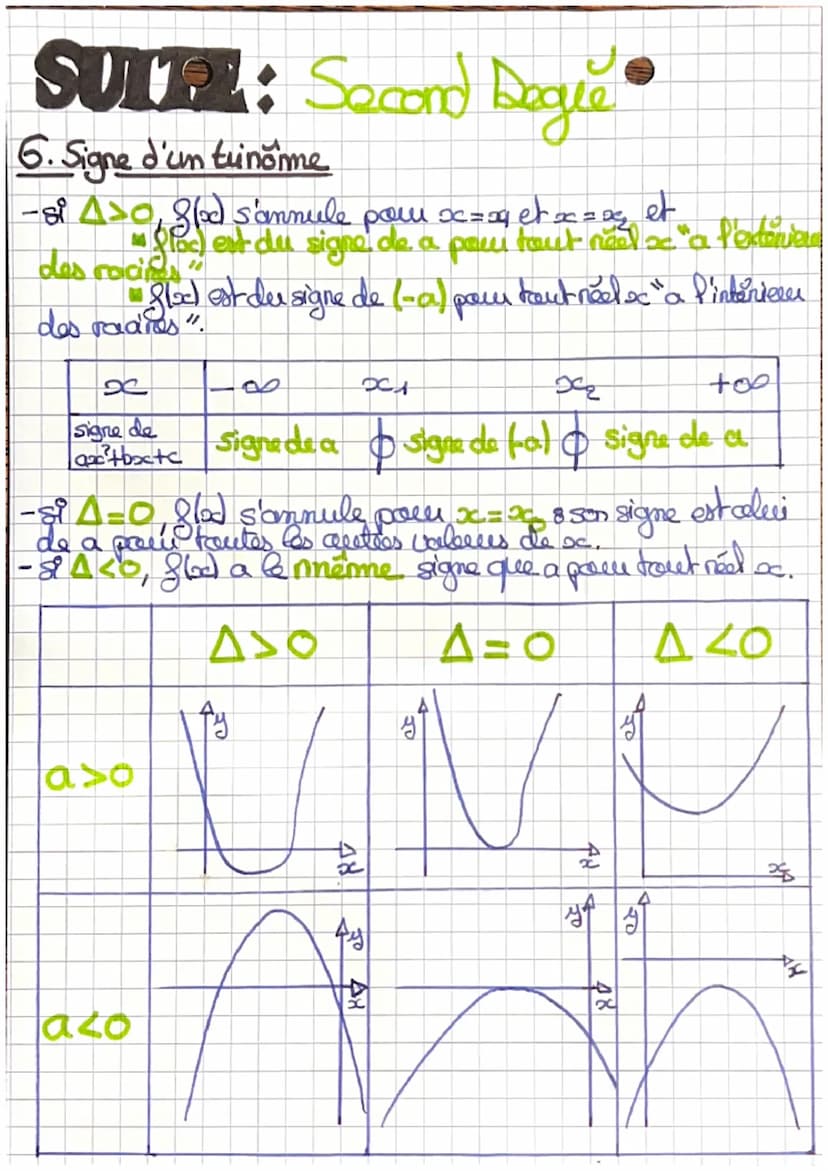 SUITE : Second Degré
6. Signe d'un trinôme
- si Δ>0, f(x) s'annule pour x=x1 et x=x2 et
▪ f(x) est du signe de a pour tout réel x "a l'extérieur
des racines"
▪ f(x) est du signe de (-a) pour tout réel x "a l'intérieur
des racines".
x -∞ x1 x2 +∞
signe de
ax²+bx+c
signe de a signe de (-a) signe de a
- si Δ=0, f(x) s'annule pour x=x0 & son signe est celui
de a pour toutes les autres valeurs de x.
- si Δ<0, f(x) a le même signe que a pour tout réel x.
Δ>0 Δ=0 Δ<0
a>0
y x
y x
y x
a<0
y x
y x
y x